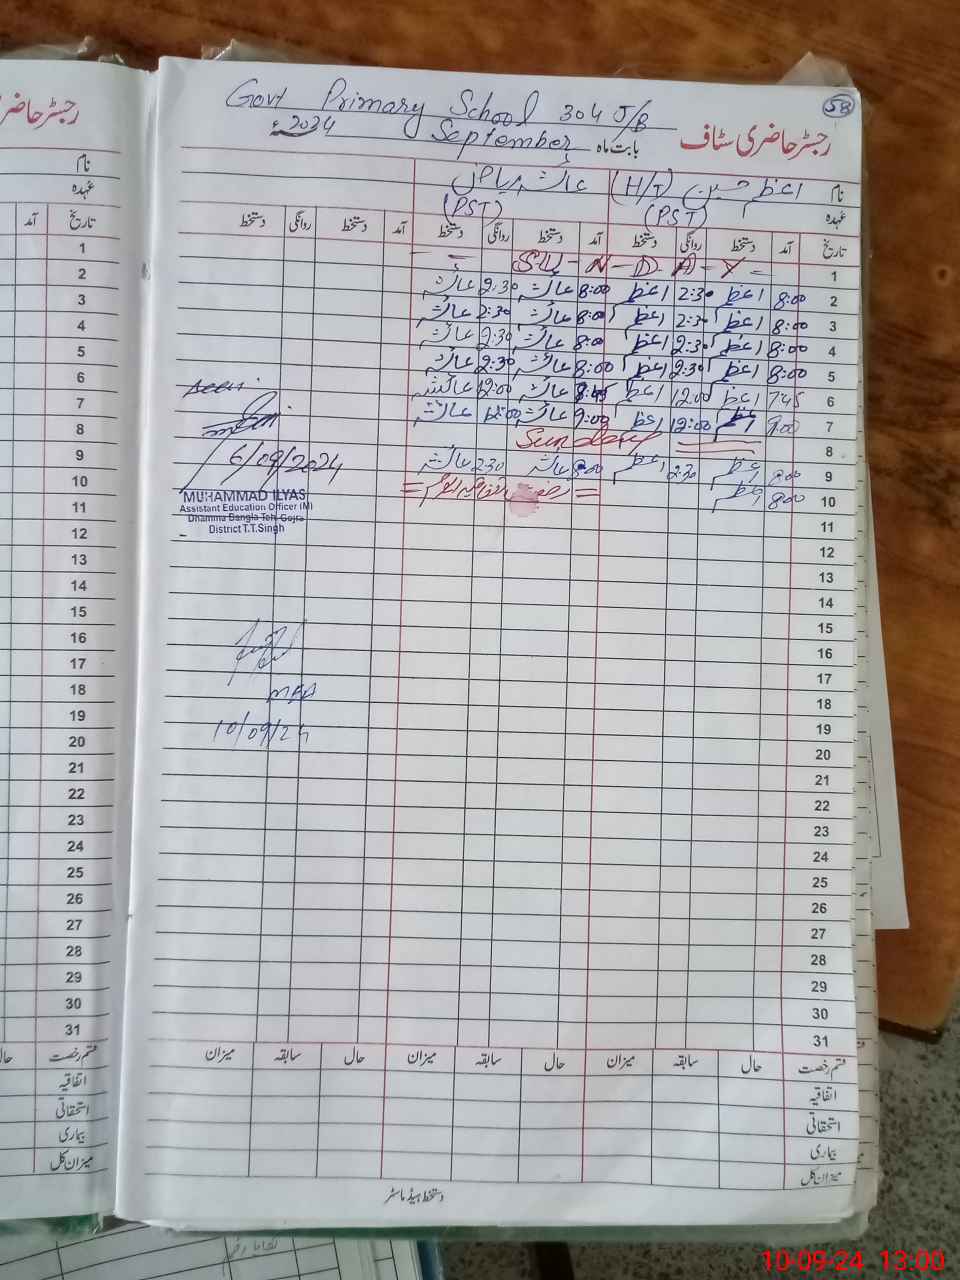 58
Govt Primary School 304 J/B
رجسٹر حاضری سٹاف بابت ماہ September 2024ء
نام اعظم حسین (H/T) عائشہ ریاض
عہدہ (PST) (PST)
تاریخ آمد دستخط روانگی دستخط آمد دستخط روانگی دستخط آمد دستخط روانگی دستخط
1 S-U-N-D-A-Y
2 8:00 اعظم 2:30 اعظم 8:00 عائشہ 2:30 عائشہ
3 8:00 اعظم 2:30 اعظم 8:00 عائشہ 2:30 عائشہ
4 8:00 اعظم 2:30 اعظم 8:00 عائشہ 2:30 عائشہ
5 8:00 اعظم 2:30 اعظم 8:00 عائشہ 2:30 عائشہ
6 7:45 اعظم 12:00 اعظم عائشہ 12:00 عائشہ
7 9:00 اعظم 12:00 اعظم 9:00 عائشہ 12:00 عائشہ
8 Sunday
9 8:00 اعظم 2:30 اعظم 8:00 عائشہ 2:30 عائشہ
10 8:00 اعظم
11
12
13
14
15
16
17
18
19
20
21
22
23
24
25
26
27
28
29
30
31
Seen
6/09/2024
MUHAMMAD ILYAS
Assistant Education Officer (M)
Dhamna Bangla Teh. Gojra
District T.T.Singh
MEA
10/09/24
قسم رخصت حال سابقہ میزان حال سابقہ میزان حال سابقہ میزان
اتفاقیہ
استحقاقی
بیماری
میزان کل
دستخط ہیڈ ماسٹر
رجسٹر حاضری
نام
عہدہ
تاریخ آمد
1
2
3
4
5
6
7
8
9
10
11
12
13
14
15
16
17
18
19
20
21
22
23
24
25
26
27
28
29
30
31
قسم رخصت حال
اتفاقیہ
استحقاقی
بیماری
میزان کل
10-09-24 13:00